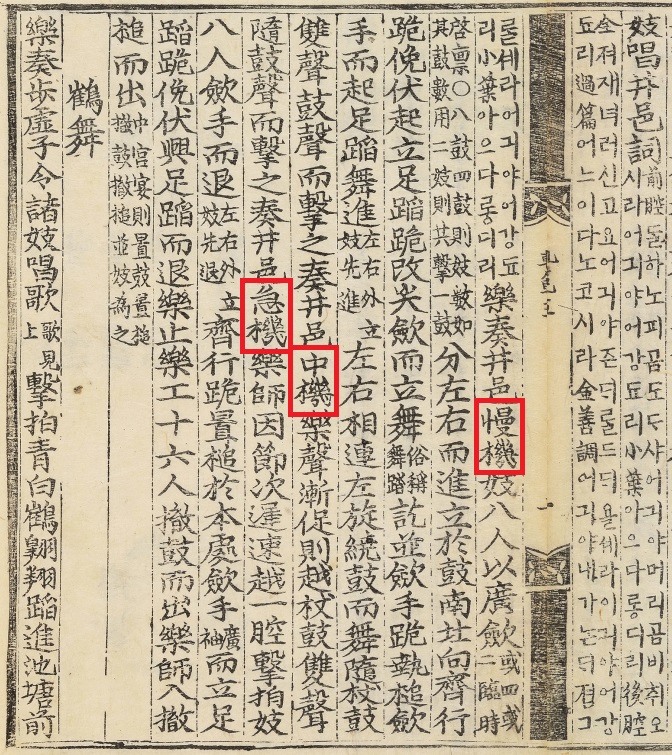 妓唱井邑詞前腔ᄃᆞᆯ하노피곰도ᄃᆞ샤어긔야머리곰비취오시라어긔야어강됴리小葉아으다롱디리後腔
全져재녀러신고요어긔야즌ᄃᆡᄅᆞᆯ드ᄃᆡ욜셰라어긔야어강됴리過篇어느이다노코시라金善調어긔야내가논ᄃᆡ졈그
ᄅᆞᆯ셰라어긔야어강됴리小葉아으다롱디리樂奏井邑慢機妓八人以廣歛或四或二臨時
啓禀〇八鼓四鼓則妓數如其鼓數用二妓則共擊一鼓分左右而進立於鼓南北向齊行
跪俛伏起立足蹈跪改尖歛而立舞俗稱舞蹈訖並歛手跪執槌歛
手而起足蹈舞進左右外妓先進立左右相連左旋繞鼓而舞隨杖鼓
雙聲鼓聲而擊之奏井邑中機樂聲漸促則越杖鼓雙聲
隨鼓聲而擊之奏井邑急機樂師因節次遲速越一腔擊拍妓
八人歛手而退左右外妓先退立齊行跪置槌於本處歛手廣袖而立足
蹈跪俛伏興足蹈而退樂止樂工十六人撤鼓而出樂師入撤
槌而出中宮宴則置鼓置槌撤鼓撤槌並妓爲之
鶴舞
樂奏步虛子令諸妓唱歌歌見上擊拍青白鶴翺翔蹈進池塘前